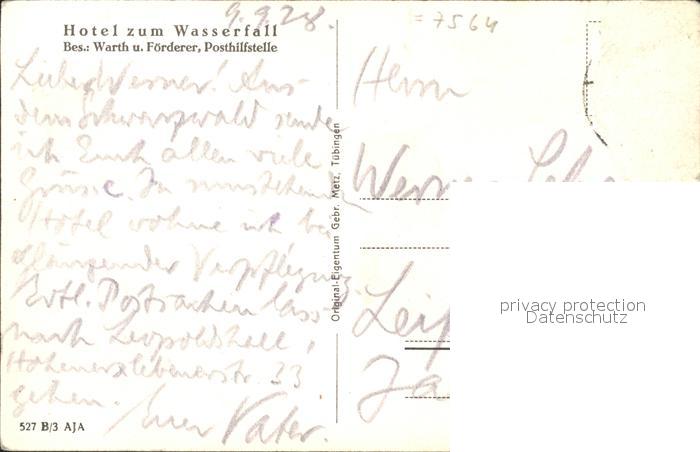 9.9.28.
= 7564
Hotel zum Wasserfall
Bes.: Warth u. Förderer, Posthilfstelle
Lieber Werner! Aus
dem Schwarzwald sende
ich Euch allen viele
Grüsse. In
Hotel wohne ich bei
glänzender Verpflegung
Evtl. Postsachen lass
nach Leopoldshall,
Hohenerxlebenerstr. 23
gehen. Euer Vater.
527 B/3 AJA
Original-Eigentum Gebr. Metz, Tübingen
Herrn
Werner
Leip
privacy protection
Datenschutz